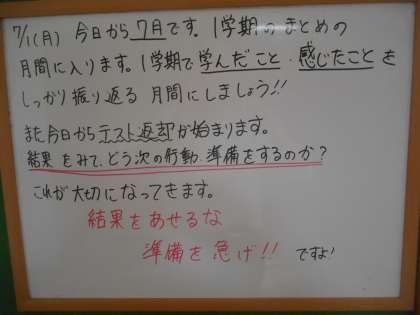 7/1(月) 今日から7月です。1学期のまとめの
月間に入ります。1学期で学んだこと・感じたことを
しっかり振り返る月間にしましょう!!
また今日からテスト返却が始まります。
結果をみて、どう次の行動・準備をするのか?
これが大切になってきます。
結果をあせるな
準備を急げ!! ですよ!